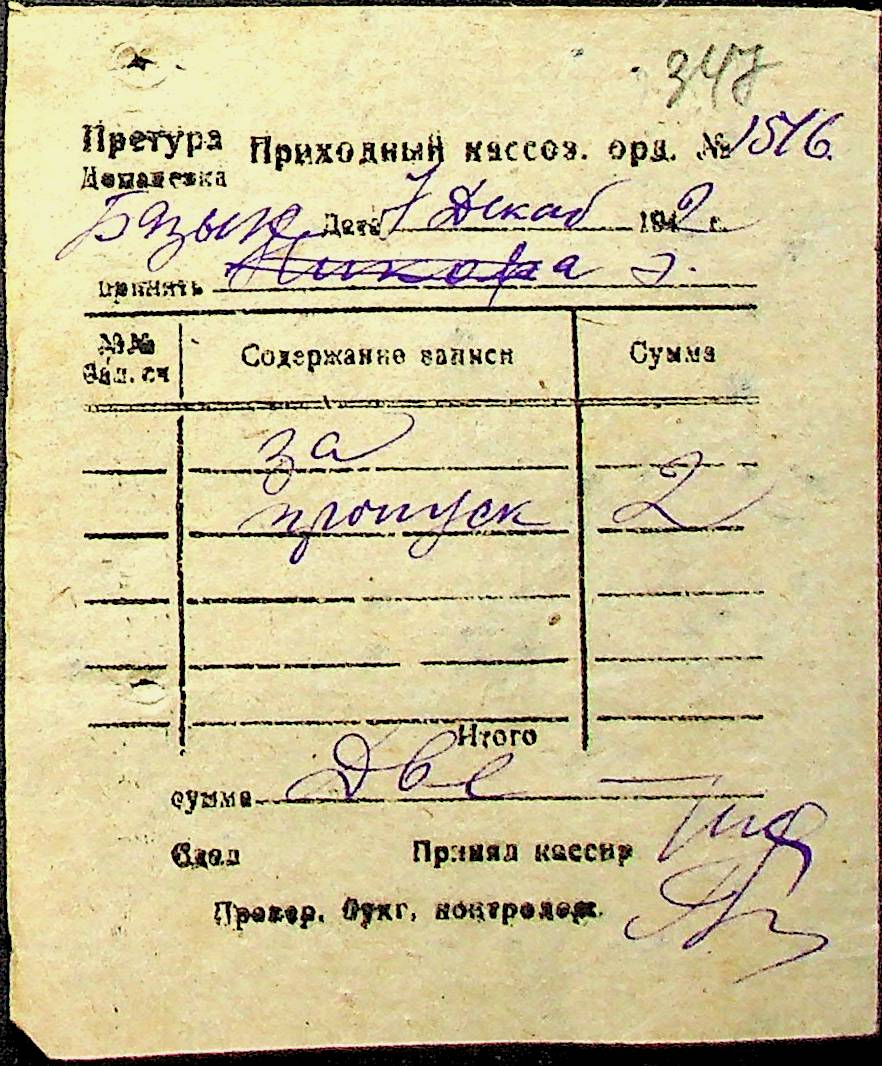 347
Претура Приходный кассов. орд. № 1516.
Доманевка
Дата 7 Декаб 1942 г.
Принять
№№ Бал. сч Содержание записи Сумма
за
пропуск 2
Итого
сумма Две —
Сдал Принял кассир
Провер. бухг. контролем.